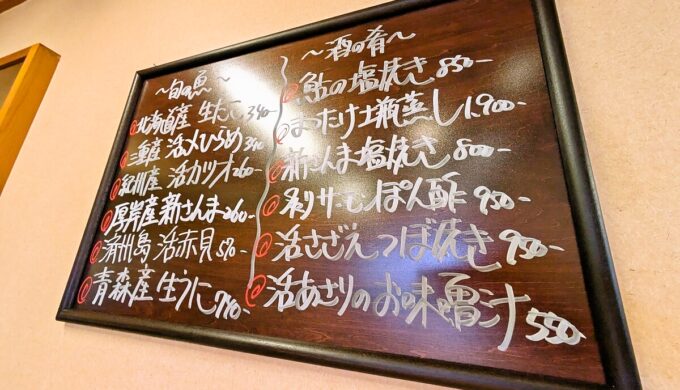 ～旬の魚～
北海道産 生たこ 340-
三重産 活〆ひらめ 340-
紀州産 活カツオ 260-
厚岸産 新さんま 260-
済州島 活赤貝 570-
青森産 生うに 740-
～酒の肴～
鮎の塩焼き 850-
まつたけ土瓶蒸し 1,900-
新さんま塩焼き 800-
炙りサーモンぽん酢 950-
活さざえつぼ焼き 950-
活あさりのお味噌汁 550-